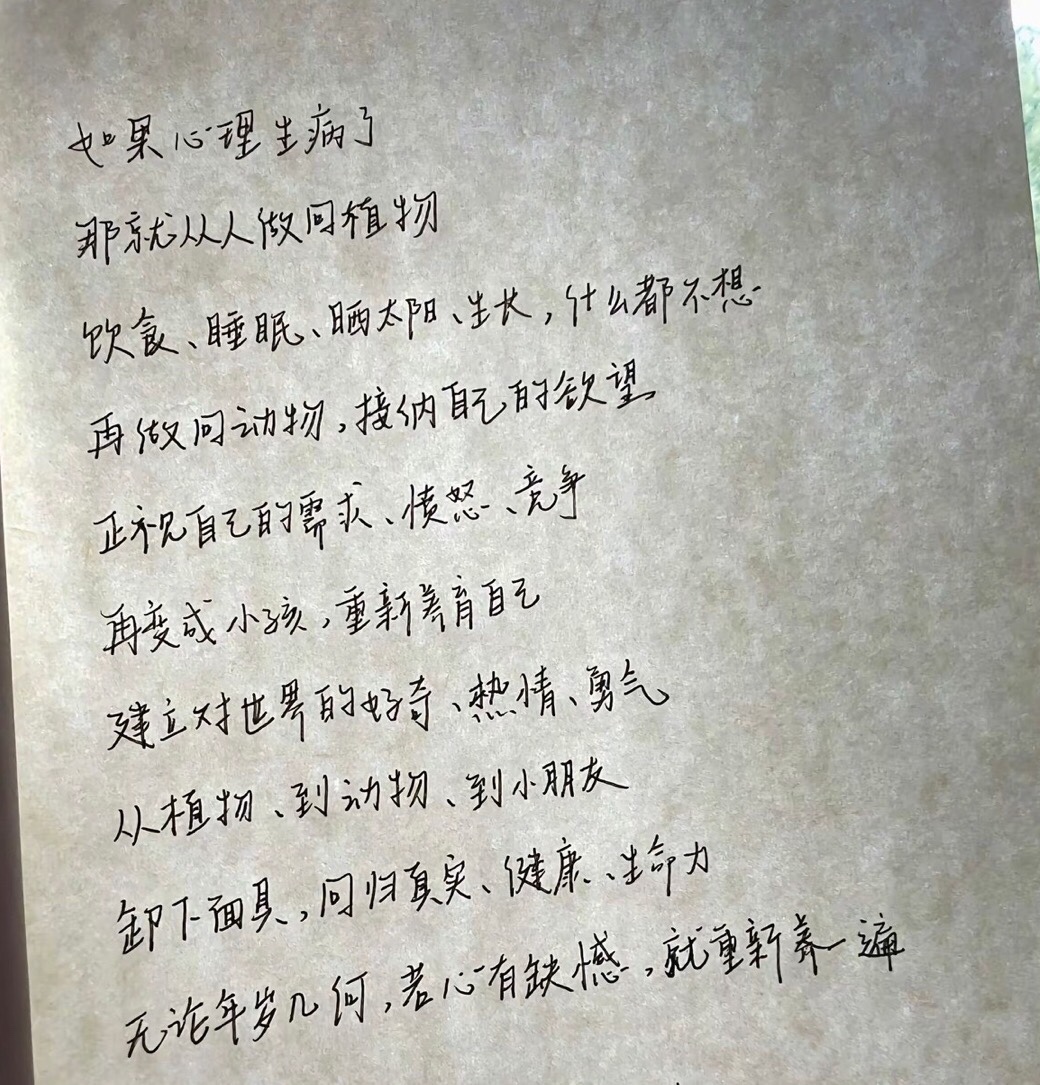 如果心理生病了
那就从人做回植物
饮食、睡眠、晒太阳、生长,什么都不想
再做回动物,接纳自己的欲望
正视自己的需求、愤怒、竞争
再变成小孩,重新养育自己
建立对世界的好奇、热情、勇气
从植物、到动物、到小朋友
卸下面具,回归真实、健康、生命力
无论年岁几何,若心有缺憾,就重新养一遍